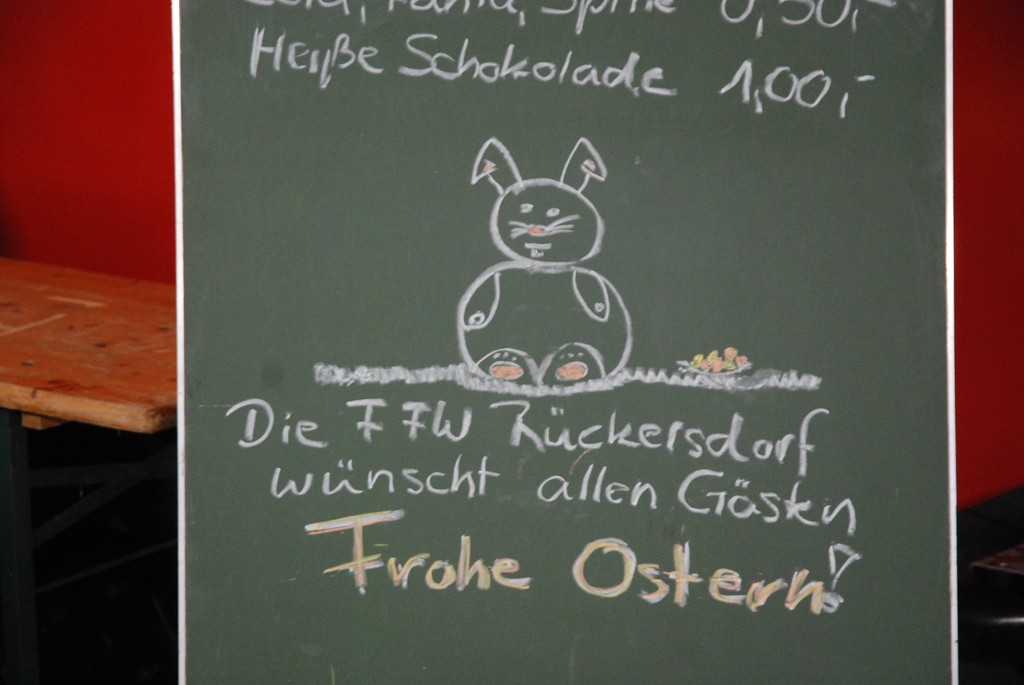 Cola, Fanta, Sprite 0,50,-
Heiße Schokolade 1,00,-
Die FFW Rückersdorf
wünscht allen Gästen
Frohe Ostern!